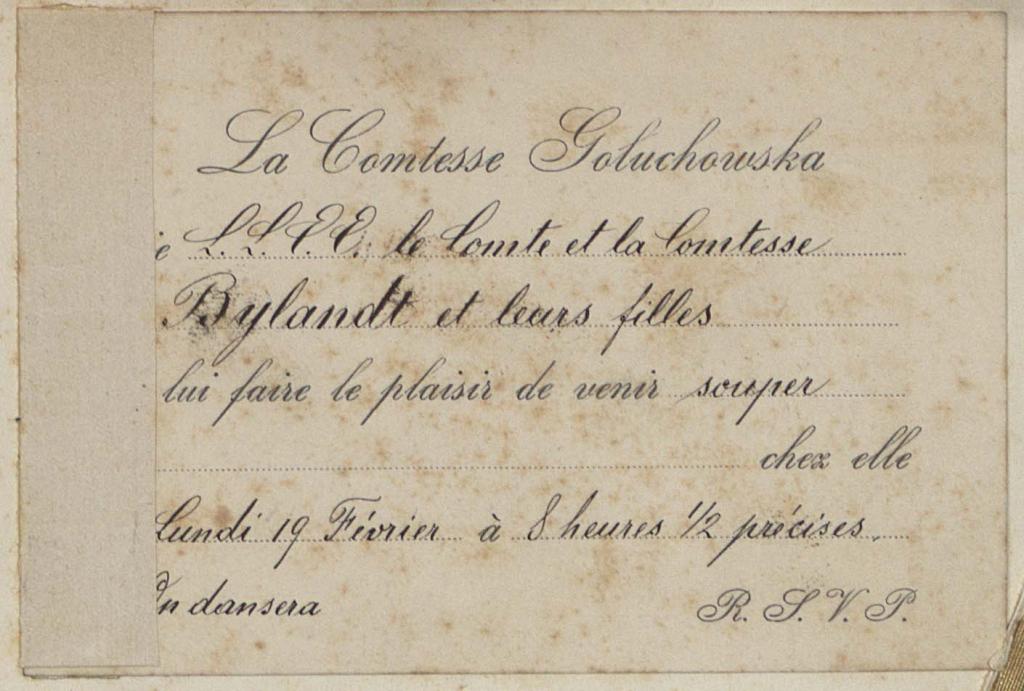 La Comtesse Goluchowska
e L.L.E.E. le Comte et la Comtesse
Bylandt et leurs filles
lui faire le plaisir de venir souper
chez elle
Lundi 19 Février à 8 heures 1/2 précises.
On dansera
R. S. V. P.